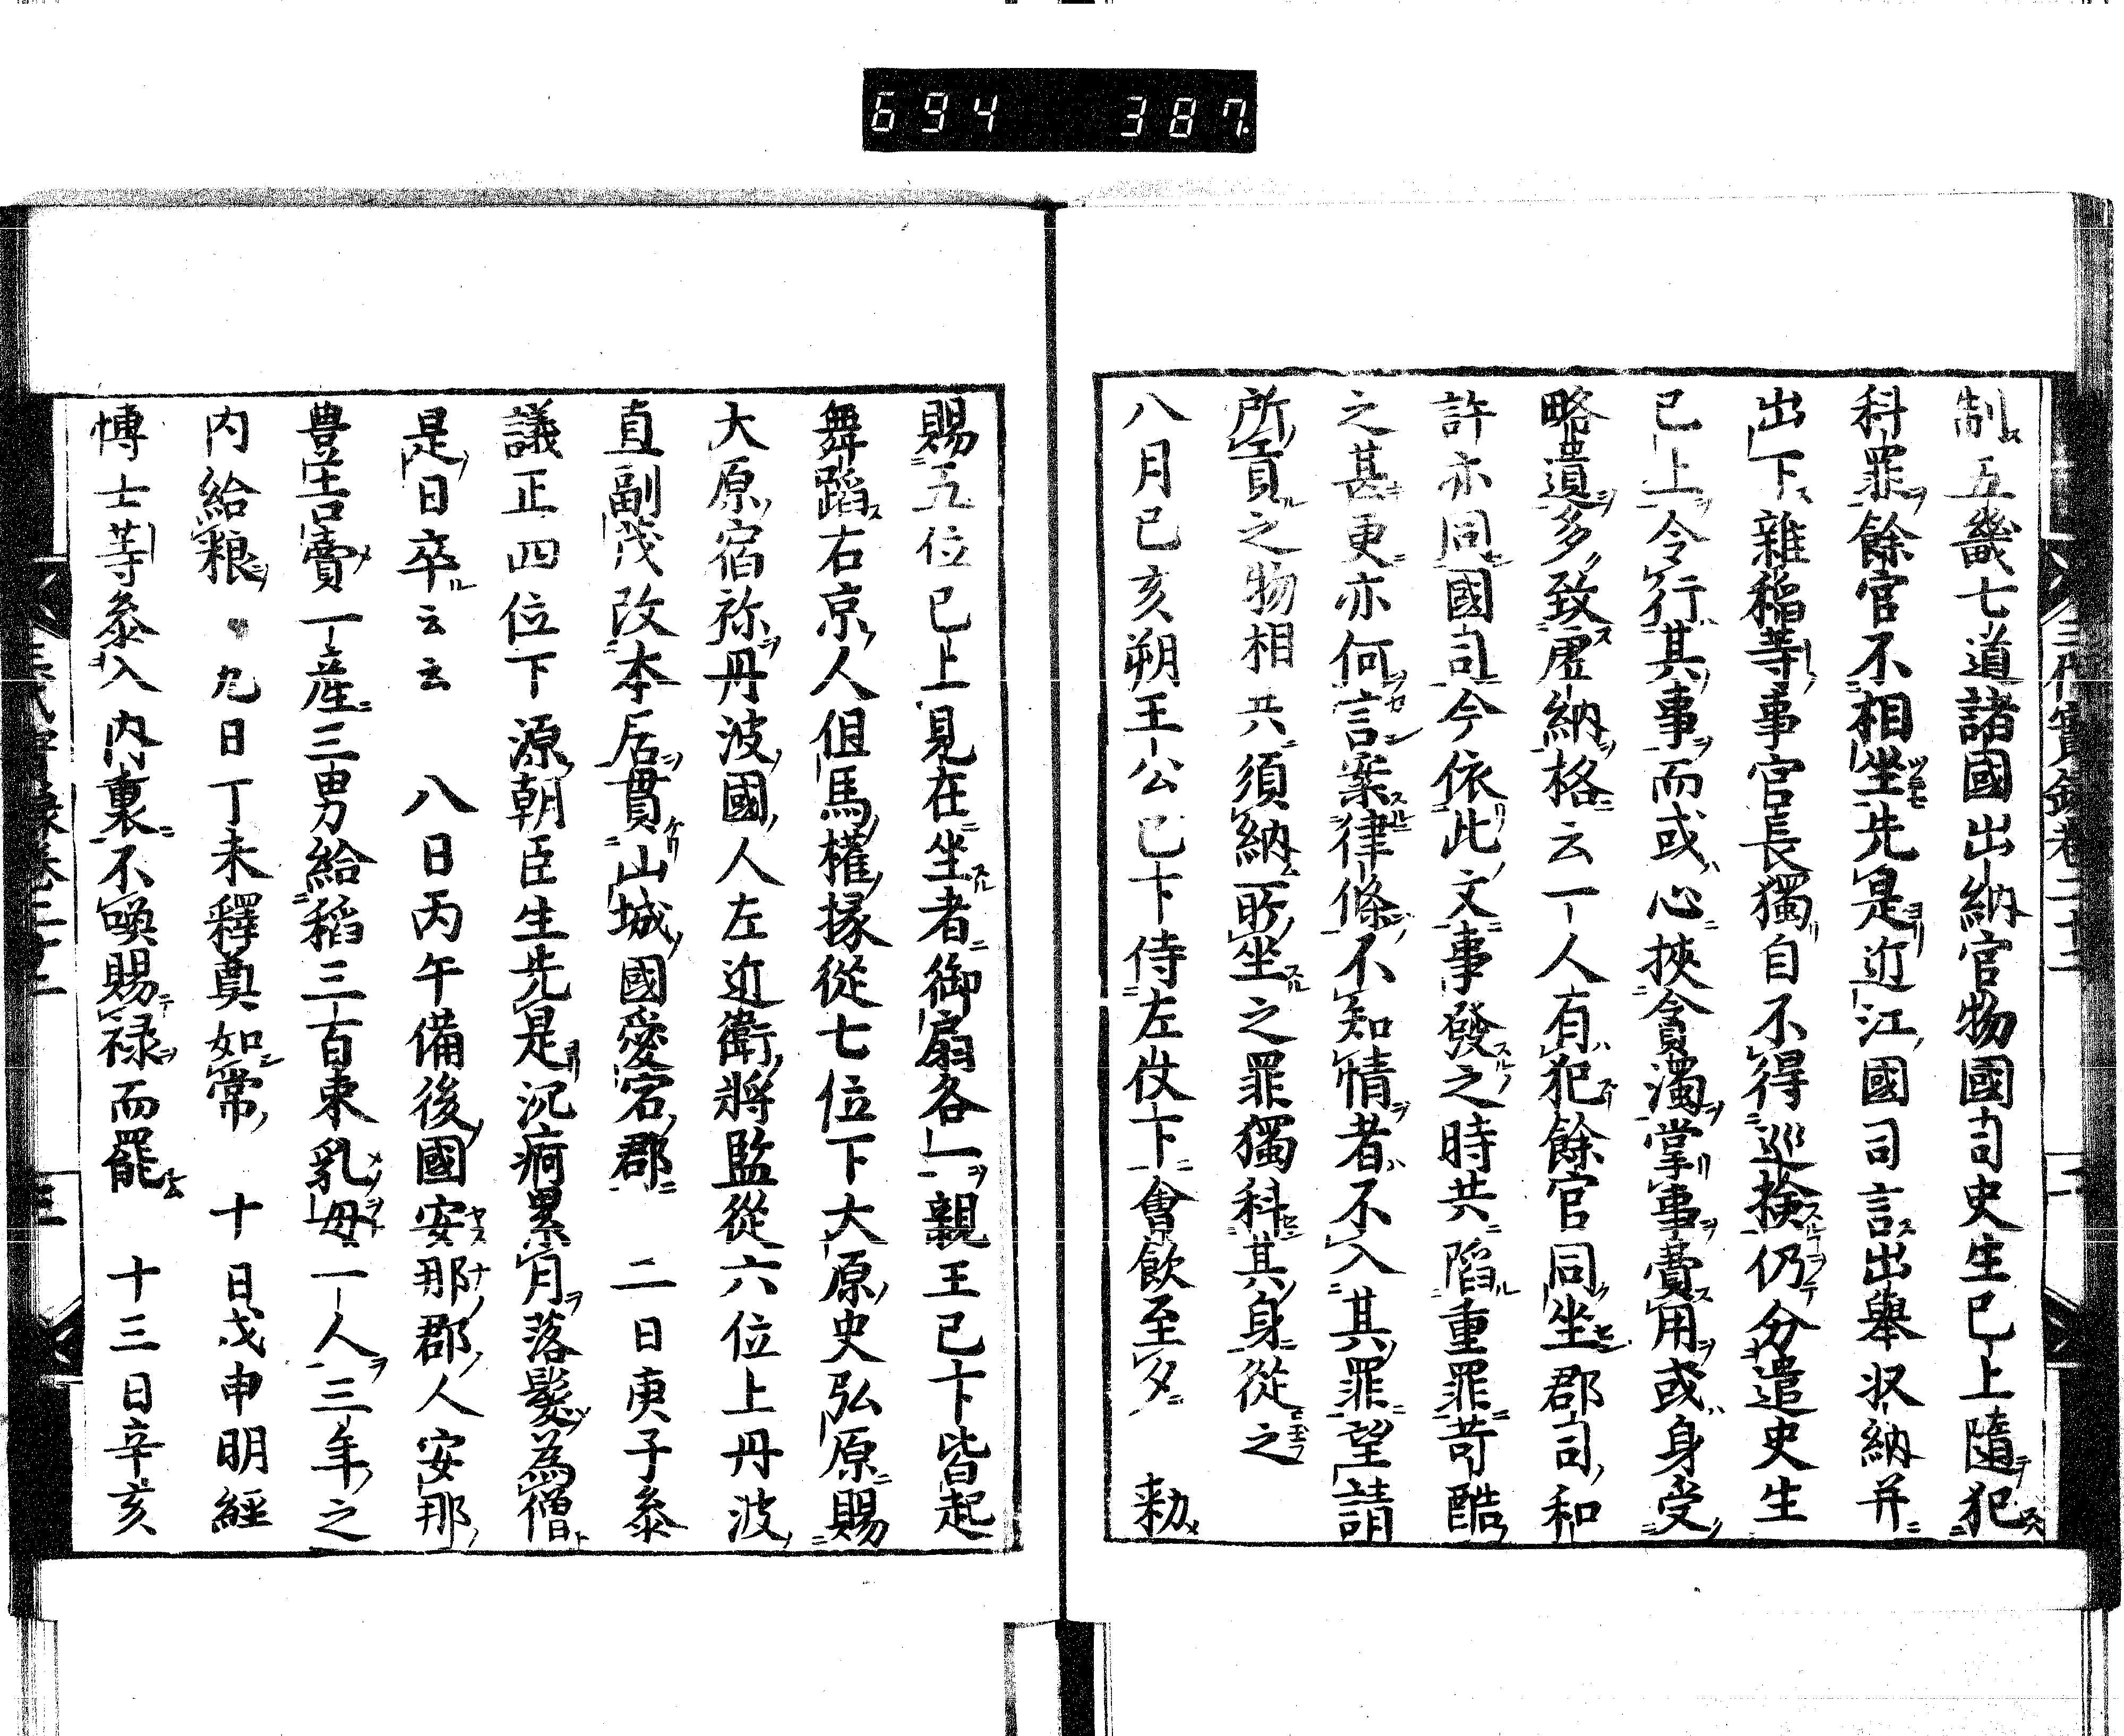 694 387.
制五畿七道諸國出納官物國司史生已上隨犯
科罪餘官不相坐先是近江國司言出舉收納并
出下雜稻等事官長獨自不得巡検仍分遣史生
已上令行其事而或心挾貪濁掌事費用或身受
略遺多致虚納格云一人有犯餘官同坐郡司和
許亦同國司今依此文事發之時共陷重罪苛酷
之甚更亦何言案律條不知情者不入其罪望請
所貢之物相共須納所坐之罪獨科其身從之
八月己亥朔王公已下侍左仗下會飲至夕 勅
賜五位已上見在坐者御扇各一親王已下皆起
舞蹈右京人但馬權掾從七位下大原史弘原賜
大原宿祢丹波國人左近衛將監從六位上丹波
直副茂改本居貫山城國愛宕郡 二日庚子叅
議正四位下源朝臣生先是沉痾累月落髮為僧
是日卒云云 八日丙午備後國安那郡人安那
豊吉賣一産三男給稻三百束乳母一人三年之
内給粮 九日丁未釋奠如常 十日戊申明經
博士等叅入内裏不喚賜禄而罷 十三日辛亥
三代實録卷二十三
三